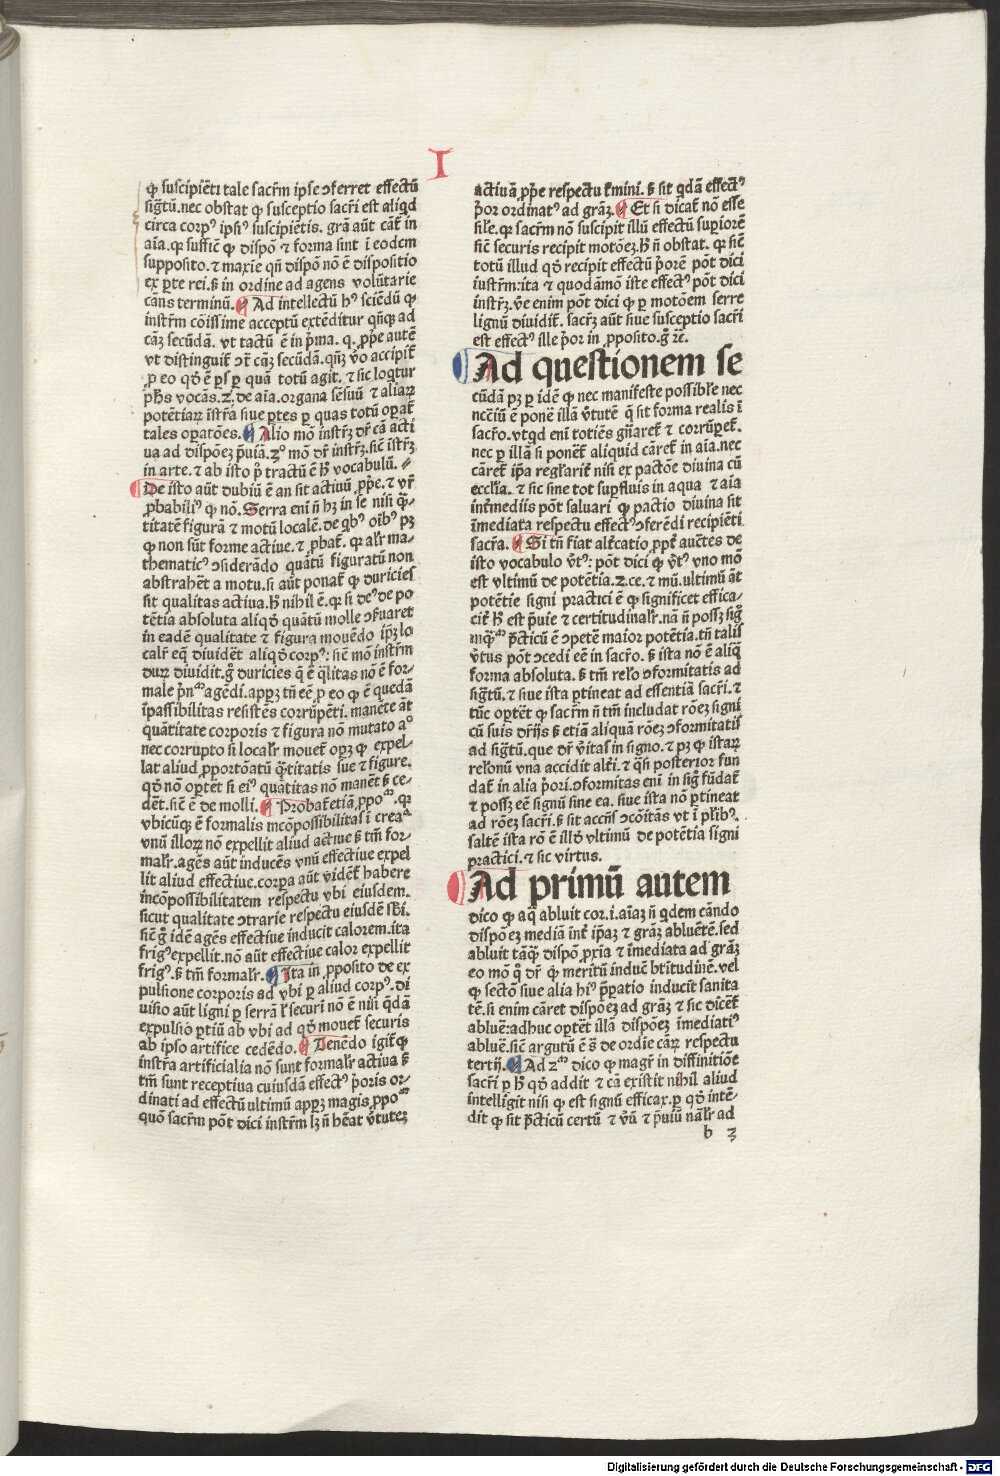 I
ꝙ suscipiēti tale sacr̄m ipse ꝯferret effectū
sigt̄ū.nec obstat ꝙ susceptio sacr̄i est aliqd
circa corpꝰ ipsiꝰ suscipiētis. grā aūt cāt̄ in
aīa.qꝛ suffiē ꝙ dispō ⁊ forma sint ī eodem
supposito.⁊ maxīe qn̄ dispō nō ē dispositio
ex ꝑte rei.ꝫ in ordine ad agens volūtarie
cāns terminū. Ad intellectū hꝰ sciēdū ꝙ
instr̄m cōissime acceptū extēditur qn̄qꝫ ad
cāꝫ secūdā. vt tactū ē in pᷓma. q. ꝓpᷓe autē
vt distinguit̄ ꝯt̄ cāꝫ secūdā.qn̄qꝫ ꝟo accipit̄
ꝑ eo qd̓ ē pꝰs ꝑ quā totū agit. ⁊ sic loqtur
pħs vocās.2.de aīa.organa sēsuū ⁊ aliaꝝ
potētiaꝝ īstr̄a siue ꝑtes ꝑ quas totū oꝑat̄
tales oꝑatōes. Alio mō instrꝫ dr̄ cā acti
ua ad dispōeꝫ p̄uiā.2ꝰ mō dr̄ instrꝫ.sic̄ īstrꝫ
in arte.⁊ ab isto p̄ tractū ē hͦ vocabulū.
De isto aūt dubiū ē an sit actiuū ꝓpᷓe.⁊ vr̄
ꝓbabiliꝰ ꝙ nō. Serra eni n̄ hꝫ in se nisi q̄-
titatē figurā ⁊ motū localē.de qbꝰ oībꝰ pꝫ
ꝙ non sūt forme actiue.⁊ ꝓbat̄. qꝛ alr̄ ma-
thematicꝰ ꝯsiderādo quātū figuratū non
abstrahēt a motu.si aūt ponat̄ ꝙ duricies
sit qualitas actiua.hͦ nihil ē.qꝛ si deꝰ de po
tētia absoluta aliqd̓ quātū molle ꝯẜuaret
in eadē qualitate ⁊ figura mouēdo ip̄ꝫ lo
calr̄ eq̄ diuidēt aliqd̓ corpꝰ: sic̄ mō instr̄m
durꝫ diuidit.g̊ duricies q̄ ē q̄litas nō ē for-
male pᷓnᵐ agēdi.appꝫ tn̄ eē ꝑ eo ꝙ ē quedā
īpassibilitas resistēs corrūpēti. manēte āt
quātitate corporis ⁊ figura nō mutato aͦ
nec corrupto si localr̄ mouet̄ opꝫ ꝙ expel-
lat aliud ꝓportōatū q̄titatis sue ⁊ figure.
qd̓ nō oꝑtēt si eiꝰ quātitas nō manēt ꝫ ce-
dēt.sic̄ ē de molli. Probat̄ etiā ꝓpoᵐ.qꝛ
vbicūqꝫ ē formalis incōpossibilitas ī creaᵃ
vnū illoꝝ nō expellit aliud actiue ꝫ tm̄ for-
malr̄.agēs aūt inducēs vnū effectiue expel
lit aliud effectiue.corpa aūt vidēt̄ habere
incōpossibilitatem respectu vbi eiusdem.
sicut qualitate ꝯtrarie respectu eiusdē sb̄i.
sic̄ g̊ idē agēs effectiue inducit calorem.ita
frigꝰ expellit.nō aūt effectiue calor expellit
frigꝰ.ꝫ tm̄ formalr̄. Ita in ꝓposito de ex
pulsione corporis ad vbi ꝑ aliud corpꝰ.di
uisio aūt ligni ꝑ serrā l̓ securi nō ē nisi q̄dā
expulsio ꝑtiū ab vbi ad qd̓ mouet̄ securis
ab ipso artifice cedēdo. Tenēdo igit̄ ꝙ
instr̄a artificialia nō sunt formalr̄ actiua ꝫ
tm̄ sunt receptiua cuiusdā effectꝰ p̄oris or-
dinati ad effectū ultimū appꝫ magis ꝓpoᵐ
quō sacr̄m pōt dici instr̄m lꝫ n̄ hēat ꝟtuteꝫ
actiuā ꝓpᷓe respectu t̄mini. ꝫ sit qdā effectꝰ
p̄or ordinatꝰ ad grāꝫ. Et si dicat̄ nō esse
sil̓e.qꝛ sacr̄m nō suscipit illū effectū suꝑiorē
sic̄ securis recipit motōeꝫ.hͦ n̄ obstat. qꝛ sic̄
totū illud qd̓ recipit effectū p̄orē pōt dici
īustr̄m:ita ⁊ quodāmō iste effectꝰ pōt dici
instrꝫ.ꝟe enim pōt dici ꝙ ꝑ motōem serre
lignū diuidit̄. sacrꝫ aūt siue susceptio sacr̄i
est effectꝰ ille p̄or in ꝓposito.g̊ ⁊c̄.
Ad questionem se
cūdā pꝫ ꝑ idē ꝙ nec manifeste possibl̓e nec
ncc̄iū ē ponē illā ꝟtutē q̄ sit forma realis ī
sacr̄o.vtqd enī totiēs gn̄aret̄ ⁊ corrūꝑet̄.
nec ꝑ illā si ponet̄ aliquid cāret̄ in aīa.nec
cāret̄ ip̄a regl̓arit̄ nisi ex pactōe diuina cū
eccl̓ia. ⁊ sic sine tot suꝑfluis in aqua ⁊ aīa
int̄mediis pōt saluari ꝙ pactio diuina sit
īmediata respectu effectꝰ ꝯferēdi recipiēti
sacr̄a. Si tn̄ fiat alt̄catio ꝓpt̄ auctēs de
isto vocabulo ꝟtꝰ: pōt dici ꝙ ꝟtꝰ vno mō
est vltimū de potētia.2.ce.⁊ mū.ultimū āt
potētie signi practici ē ꝙ significet effica-
cit̄ hͦ est p̄uie ⁊ certitudinalr̄.nā n̄ possꝫ sig̊
mq̄ᵐ p̄cticū ē ꝯpetē maior potētia.tn̄ talis
ꝟtus pōt ꝯcedi eē in sacr̄o. ꝫ ista nō ē aliq̄
forma absoluta. ꝫ tm̄ rel̓o ꝯformitatis ad
sigt̄ū.⁊ siue ista ꝑtineat ad essentiā sacr̄i. ⁊
tūc oꝑtēt ꝙ sacr̄m n̄ tm̄ includat rōeꝫ signi
cū suis dr̄ijs ꝫ etiā aliquā rōeꝫ ꝯformitatis
ad sigt̄ū.que dr̄ ꝟitas in signo.⁊ pꝫ ꝙ istaꝝ
rel̓onū vna accidit alt̄i.⁊ q̄si posterior fun
dat̄ in alia p̄ori.ꝯformitas enī in sig̊ fūdat̄
⁊ possꝫ eē signū sine ea. siue ista nō ꝑtineat
ad rōeꝫ sacr̄i. ꝫ sit accn̄s ꝯcōitās vt ī pl̓ibꝰ.
saltē ista rō ē illd̓ vltimū de potētia signi
practici.⁊ sic virtus.
Ad primū autem
dico ꝙ aq̄ abluit cor.i.aīaꝫ n̄ qdem cāndo
dispōeꝫ mediā int̄ ip̄aꝫ ⁊ grāꝫ abluētē.sed
abluit tāq̄ dispō ꝓxīa ⁊ īmediata ad grāꝫ
eo mō q̊ dr̄ ꝙ meritū induē btitudinē.vel
ꝙ sectō siue alia hiꝰ p̄ꝑatio inducit sanita
tē.si enim cāret dispōeꝫ ad grāꝫ ⁊ sic dicēt̄
abluē:adhuc oꝑtēt illā dispōeꝫ īmediatiꝰ
abluē.sic̄ argutū ē s̄ de ordīe cāꝝ respectu
tertij. Ad 2ᵐ dico ꝙ magr̄ in diffinitiōe
sacr̄i ꝑ hͦ qd̓ addit ⁊ cā existit nihil aliud
intelligit nisi ꝙ est signū efficax.ꝑ qd̓ intē-
dit ꝙ sit p̄cticū certū ⁊ ꝟū ⁊ p̄uiū nālr̄ ad
b 3
Digitalisierung gefördert durch die Deutsche Forschungsgemeinschaft - DFG